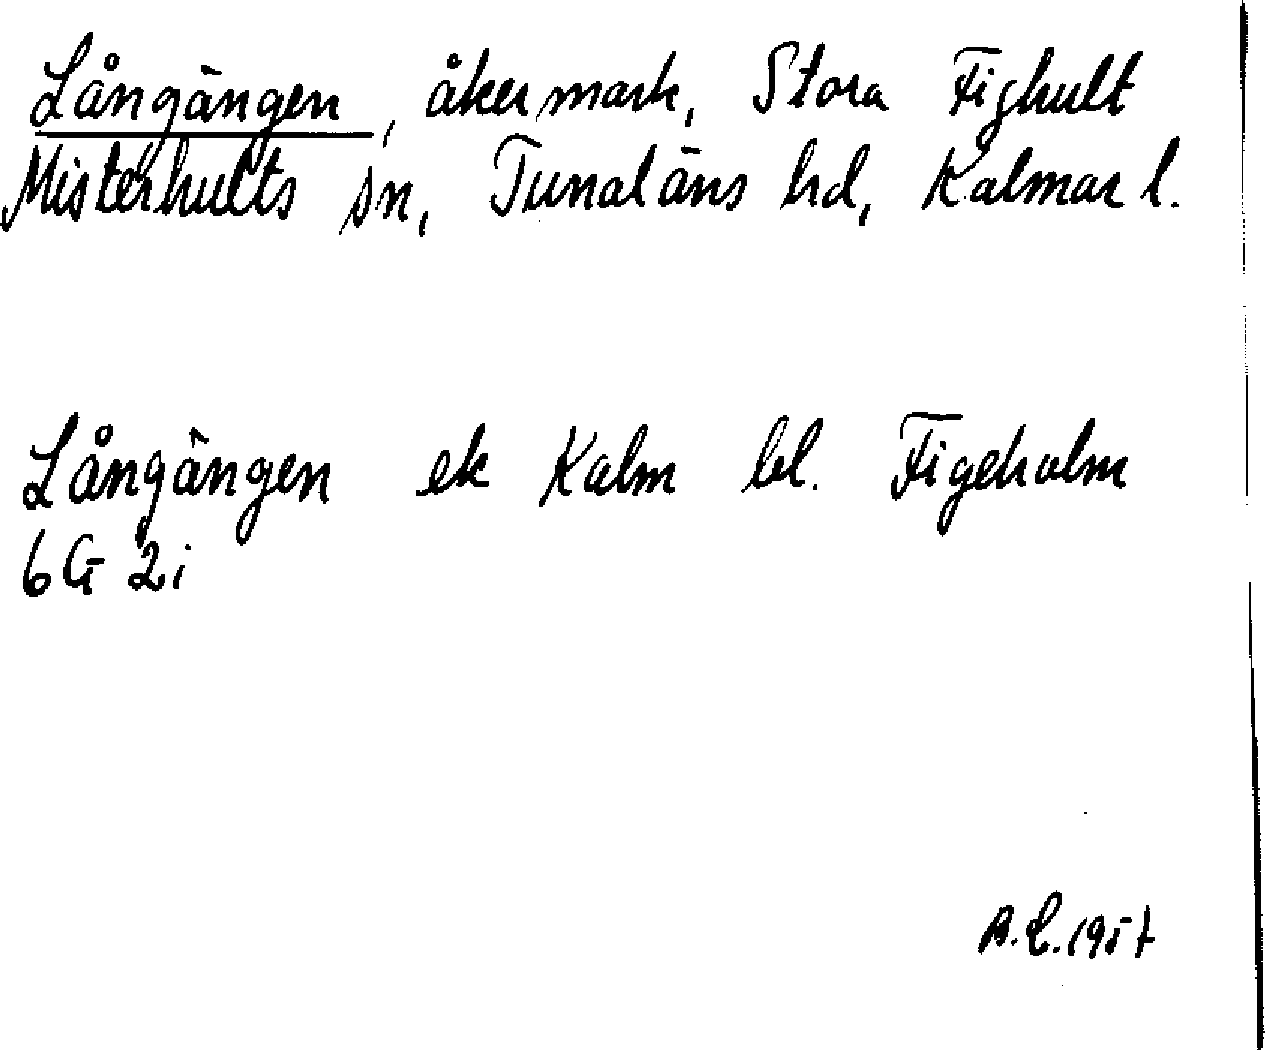 Långängen, åkermark, Stora Fighult
Misterhults sn, Tunaläns hd, Kalmar l.
Långängen ek Kalm bl. Figeholm
6G 2i
A.L. 1957